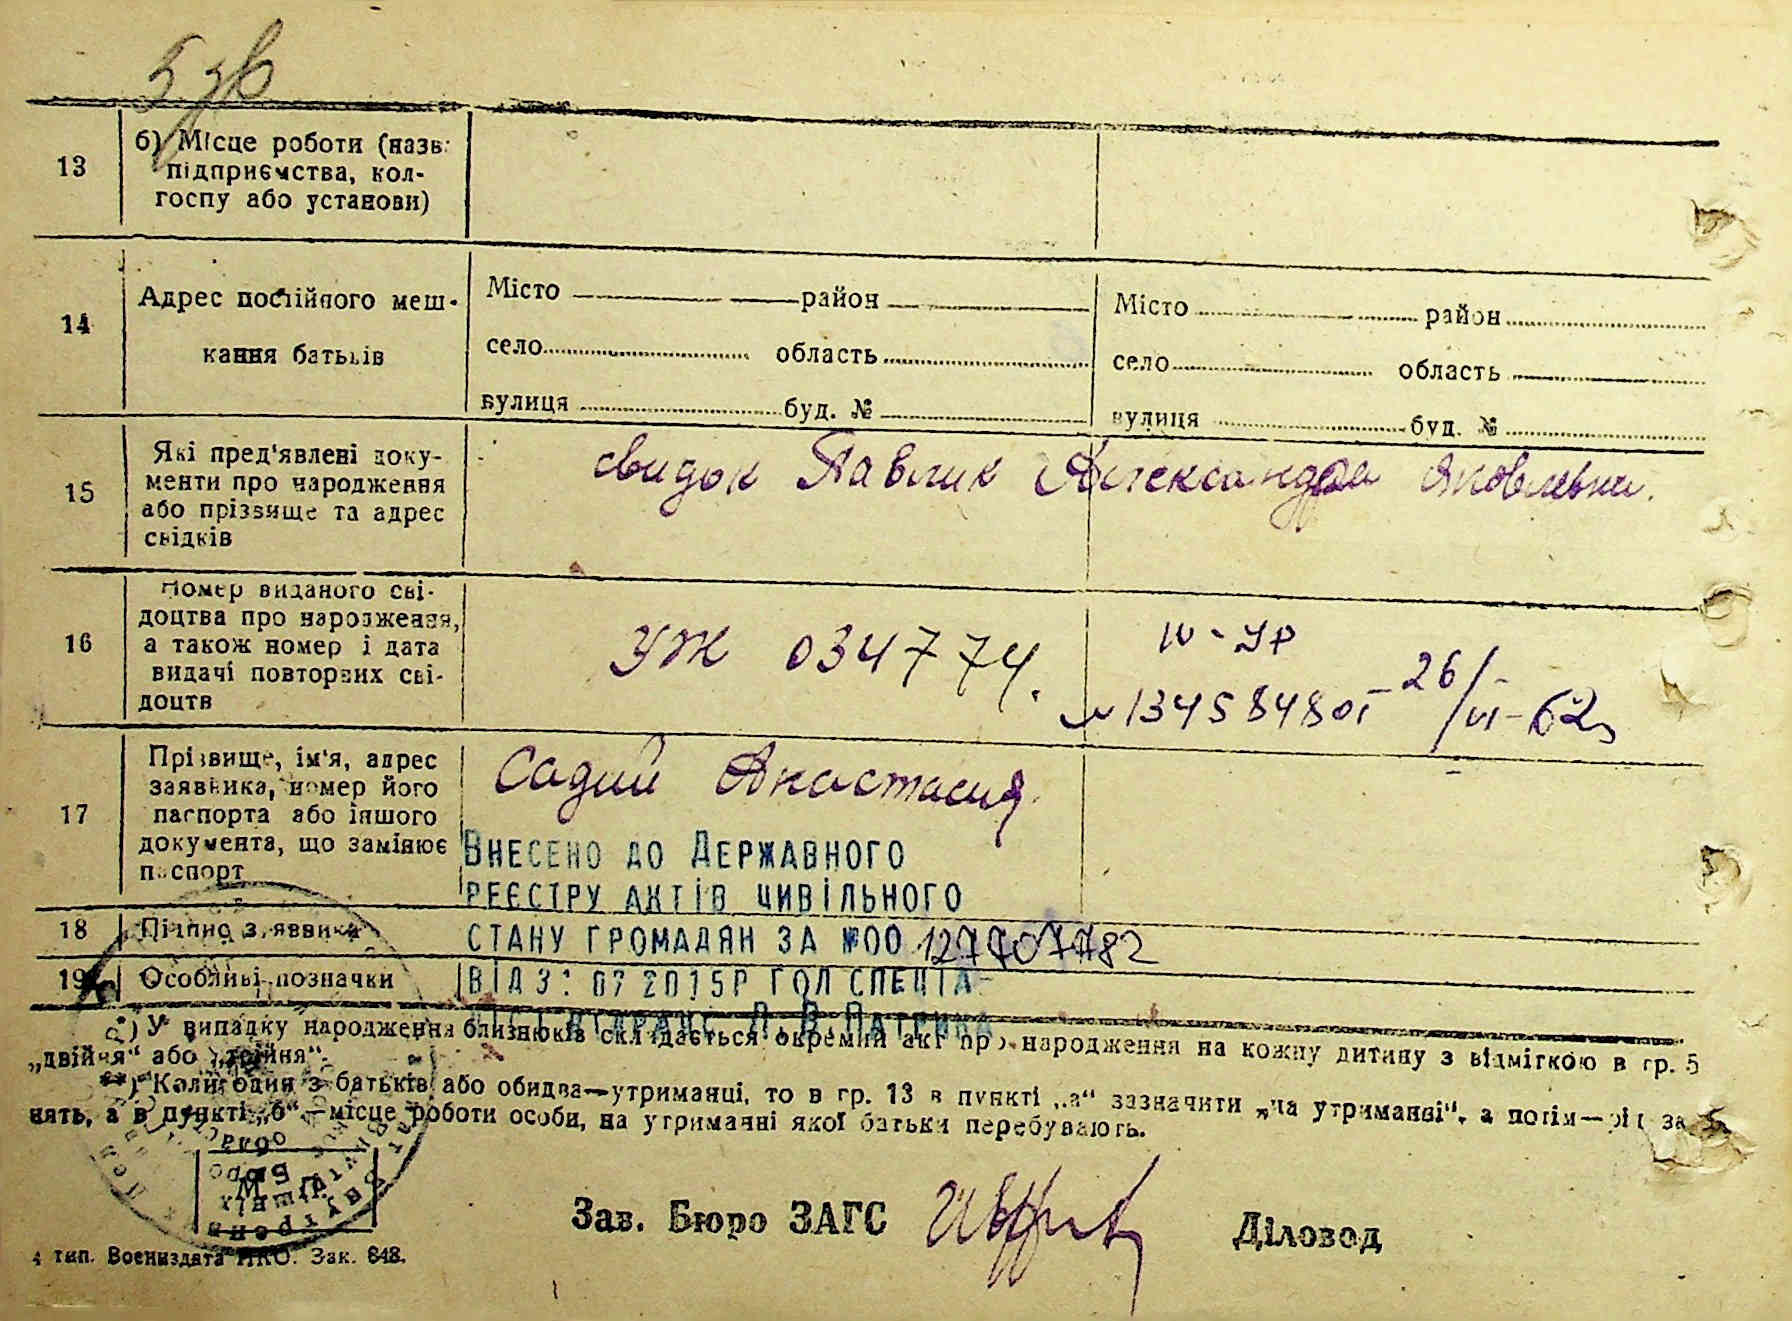 13
б) Місце роботи (назв.
підприємства, кол-
госпу або установи)
14
Адрес постійного меш-
кання батьків
Місто район
село область
вулиця буд. №
Місто район
село область
вулиця буд. №
15
Які пред'явлені доку-
менти про народження
або прізвище та адрес
свідків
свидок Павлик Александра Яковлевна.
16
Номер виданого сві-
доцтва про народження,
а також номер і дата
видачі повторних сві-
доцтв
УЖ 034774.
IV-УР
26/VI-62
17
Прізвище, ім'я, адрес
заявника, номер його
паспорта або іншого
документа, що замінює
паспорт
Садий Анастасия
Внесено до Державного
реєстру актів цивільного
18
Підпис заявника
стану громадян за №00 127707782
19
Особливі позначки
від 3. 07 2015р гол спеціа-
*) У випадку народження близнюків складається окремий акт про народження на кожну дитину з відміткою в гр. 5
„двійня“ або „трійня“.
**) Коли один з батьків або обидва—утриманці, то в гр. 13 в пункті „а“ зазначити „на утриманні“, а потім—рід за-
нять, а в пункті „б“—місце роботи особи, на утриманні якої батьки перебувають.
М. П.
Зав. Бюро ЗАГС
Діловод
4 тип. Воениздата НКО. Зак. 848.